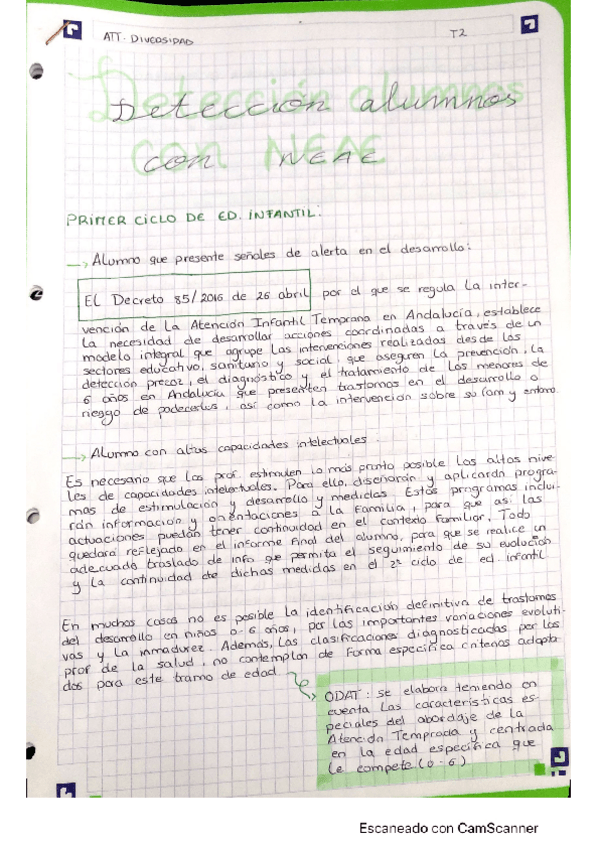 ATT. DIVERSIDAD
T2
Detección alumnos
con NEAE
PRIMER CICLO DE ED. INFANTIL:
→ Alumno que presente señales de alerta en el desarrollo:
EL Decreto 85/2016 de 26 abril por el que se regula la inter-
vención de la Atención Infantil Temprana en Andalucía, establece
la necesidad de desarrollar acciones coordinadas a través de un
modelo integral que agrupe las intervenciones realizadas desde los
sectores educativo, sanitario y social, que aseguren la prevención, la
detección precoz, el diagnóstico y el tratamiento de los menores de
6 años en Andalucía que presenten trastornos en el desarrollo o
riesgo de padecerlos, así como la intervención sobre su fam y entorno.
→ Alumno con altas capacidades intelectuales.
Es necesario que los prof. estimulen lo más pronto posible los altos nive-
les de capacidades intelectuales. Para ello, diseñarán y aplicarán progra-
mas de estimulación y desarrollo y medidas. Estos programas inclui-
rán información y orientaciones a la familia, para que así las
actuaciones puedan tener continuidad en el contexto familiar. Todo
quedará reflejado en el informe final del alumno, para que se realice un
adecuado traslado de info que permita el seguimiento de su evolución
y la continuidad de dichas medidas en el 2º ciclo de ed. infantil
En muchos casos no es posible la identificación definitiva de trastornos
del desarrollo en niños 0-6 años, por las importantes variaciones evoluti-
vas y la inmadurez. Además, las clasificaciones diagnosticadas por los
prof de la salud, no contemplan de forma específica criterios adapta-
dos para este tramo de edad.
ODAT: se elabora teniendo en
cuenta las características es-
peciales del abordaje de la
Atención Temprada y centrada
en la edad específica que
le compete (0-6)
Escaneado con CamScanner